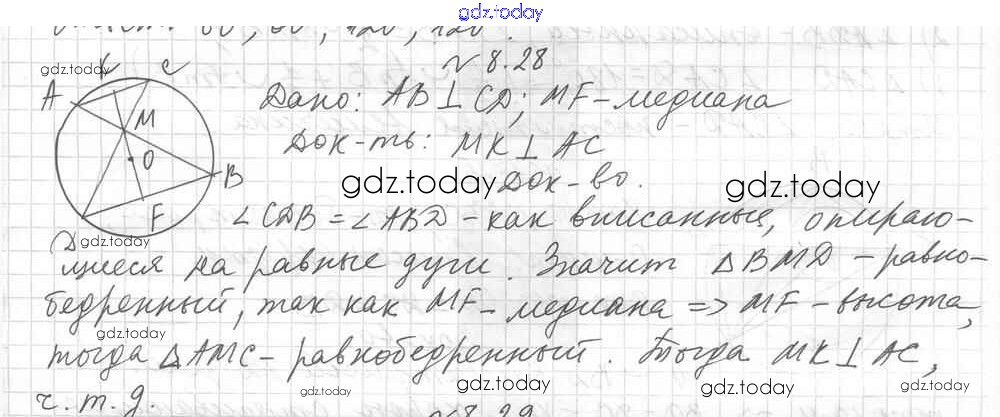 gdz.today
№ 8.28
gdz.today
K C
A
Дано: AB⊥CD; MF-медиана
M
Док-ть: MK⊥AC
O
B
gdz.today Док-во. gdz.today
F
∠CDB = ∠ABD - как вписанные, опираю-
D gdz.today
щиеся на равные дуги. Значит △BMD - равно-
бедренный, так как MF - медиана => MF - высота,
gdz.today
тогда △AMC - равнобедренный. Тогда MK⊥AC,
gdz.today gdz.today gdz.today gdz.today
ч.т.д.
№8.29